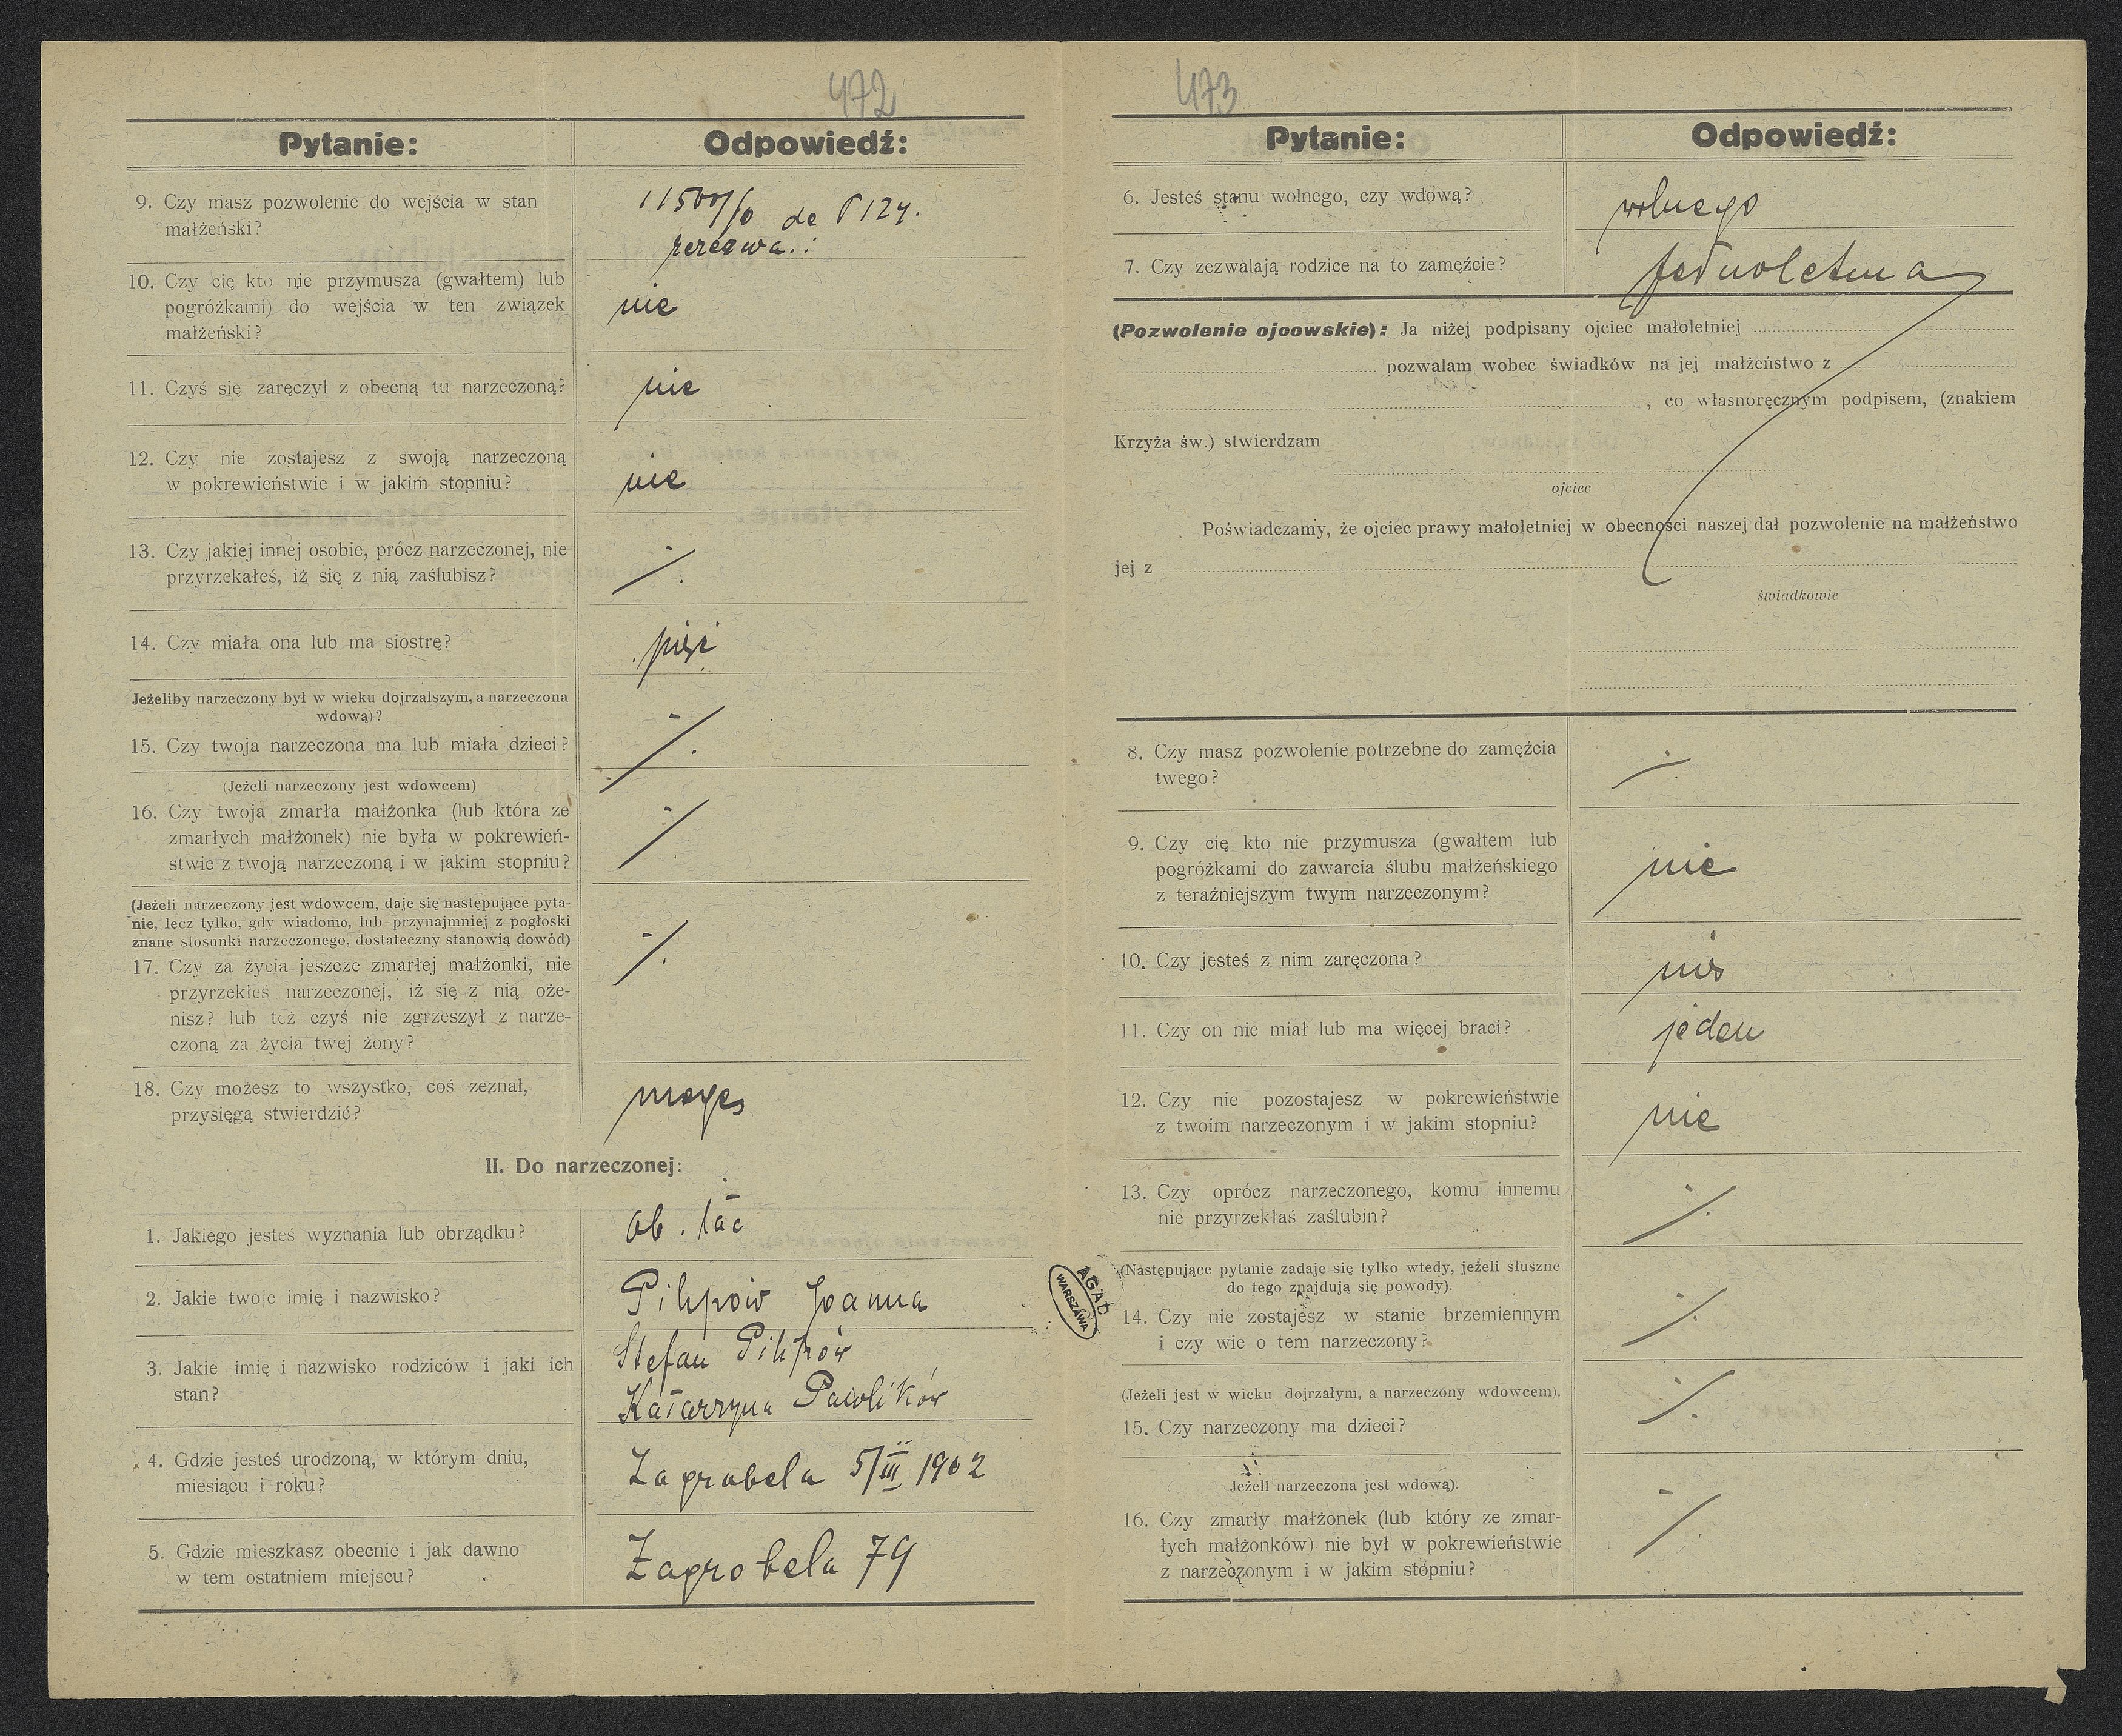 472
Pytanie:
Odpowiedź:
9. Czy masz pozwolenie do wejścia w stan
małżeński?
de
rerezwa.
10. Czy cię kto nie przymusza (gwałtem) lub
pogróżkami) do wejścia w ten związek
małżeński?
nie
11. Czyś się zaręczył z obecną tu narzeczoną?
nie
12. Czy nie zostajesz z swoją narzeczoną
w pokrewieństwie i w jakim stopniu?
nie
13. Czy jakiej innej osobie, prócz narzeczonej, nie
przyrzekałeś, iż się z nią zaślubisz?
14. Czy miała ona lub ma siostrę?
Jeżeliby narzeczony był w wieku dojrzalszym, a narzeczona
wdową)?
15. Czy twoja narzeczona ma lub miała dzieci?
(Jeżeli narzeczony jest wdowcem)
16. Czy twoja zmarła małżonka (lub która ze
zmarłych małżonek) nie była w pokrewień-
stwie z twoją narzeczoną i w jakim stopniu?
(Jeżeli narzeczony jest wdowcem, daje się następujące pyta-
nie, lecz tylko, gdy wiadomo, lub przynajmniej z pogłoski
znane stosunki narzeczonego, dostateczny stanowią dowód)
17. Czy za życia jeszcze zmarłej małżonki, nie
przyrzekłeś narzeczonej, iż się z nią oże-
nisz? lub też czyś nie zgrzeszył z narze-
czoną za życia twej żony?
18. Czy możesz to wszystko, coś zeznał,
przysięgą stwierdzić?
II. Do narzeczonej:
1. Jakiego jesteś wyznania lub obrządku?
ob. łać
2. Jakie twoje imię i nazwisko?
Pilipów Joanna
3. Jakie imię i nazwisko rodziców i jaki ich
stan?
Stefan Pilipów
Katarzyna Pawlików
4. Gdzie jesteś urodzoną, w którym dniu,
miesiącu i roku?
Zagrobela 5/III 1902
5. Gdzie mieszkasz obecnie i jak dawno
w tem ostatniem miejscu?
Zagrobela 79
473
Pytanie:
Odpowiedź:
6. Jesteś stanu wolnego, czy wdową?
wolnego
7. Czy zezwalają rodzice na to zamęźcie?
(Pozwolenie ojcowskie): Ja niżej podpisany ojciec małoletniej
pozwalam wobec świadków na jej małżeństwo z
, co własnoręcznym podpisem, (znakiem
Krzyża św.) stwierdzam
ojciec
Poświadczamy, że ojciec prawy małoletniej w obecności naszej dał pozwolenie na małżeństwo
jej z
świadkowie
8. Czy masz pozwolenie potrzebne do zamęźcia
twego?
9. Czy cię kto nie przymusza (gwałtem lub
pogróżkami do zawarcia ślubu małżeńskiego
z teraźniejszym twym narzeczonym?
nie
10. Czy jesteś z nim zaręczona?
nie
11. Czy on nie miał lub ma więcej braci?
jeden
12. Czy nie pozostajesz w pokrewieństwie
z twoim narzeczonym i w jakim stopniu?
nie
13. Czy oprócz narzeczonego, komu innemu
nie przyrzekłaś zaślubin?
(Następujące pytanie zadaje się tylko wtedy, jeżeli słuszne
do tego znajdują się powody).
14. Czy nie zostajesz w stanie brzemiennym
i czy wie o tem narzeczony?
(Jeżeli jest w wieku dojrzałym, a narzeczony wdowcem).
15. Czy narzeczony ma dzieci?
Jeżeli narzeczona jest wdową).
16. Czy zmarły małżonek (lub który ze zmar-
łych małżonków) nie był w pokrewieństwie
z narzeczonym i w jakim stopniu?
AGAD
WARSZAWA